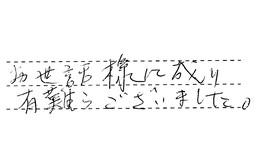 お世話様に成り
有難うございました。